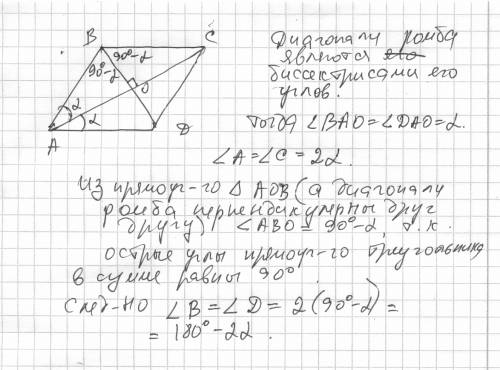 B
C
90°-α
90°-α
O
α
α
A
D
Диагонали ромба
являются его
биссектрисами его
углов.
Тогда ∠BAO = ∠DAO = α.
∠A = ∠C = 2α.
Из прямоуг-го Δ AOB (а диагонали
ромба перпендикулярны друг
другу) ∠ABO = 90° - α, т.к.
острые углы прямоуг-го треугольника
в сумме равны 90°.
След-но ∠B = ∠D = 2(90° - α) =
= 180° - 2α.